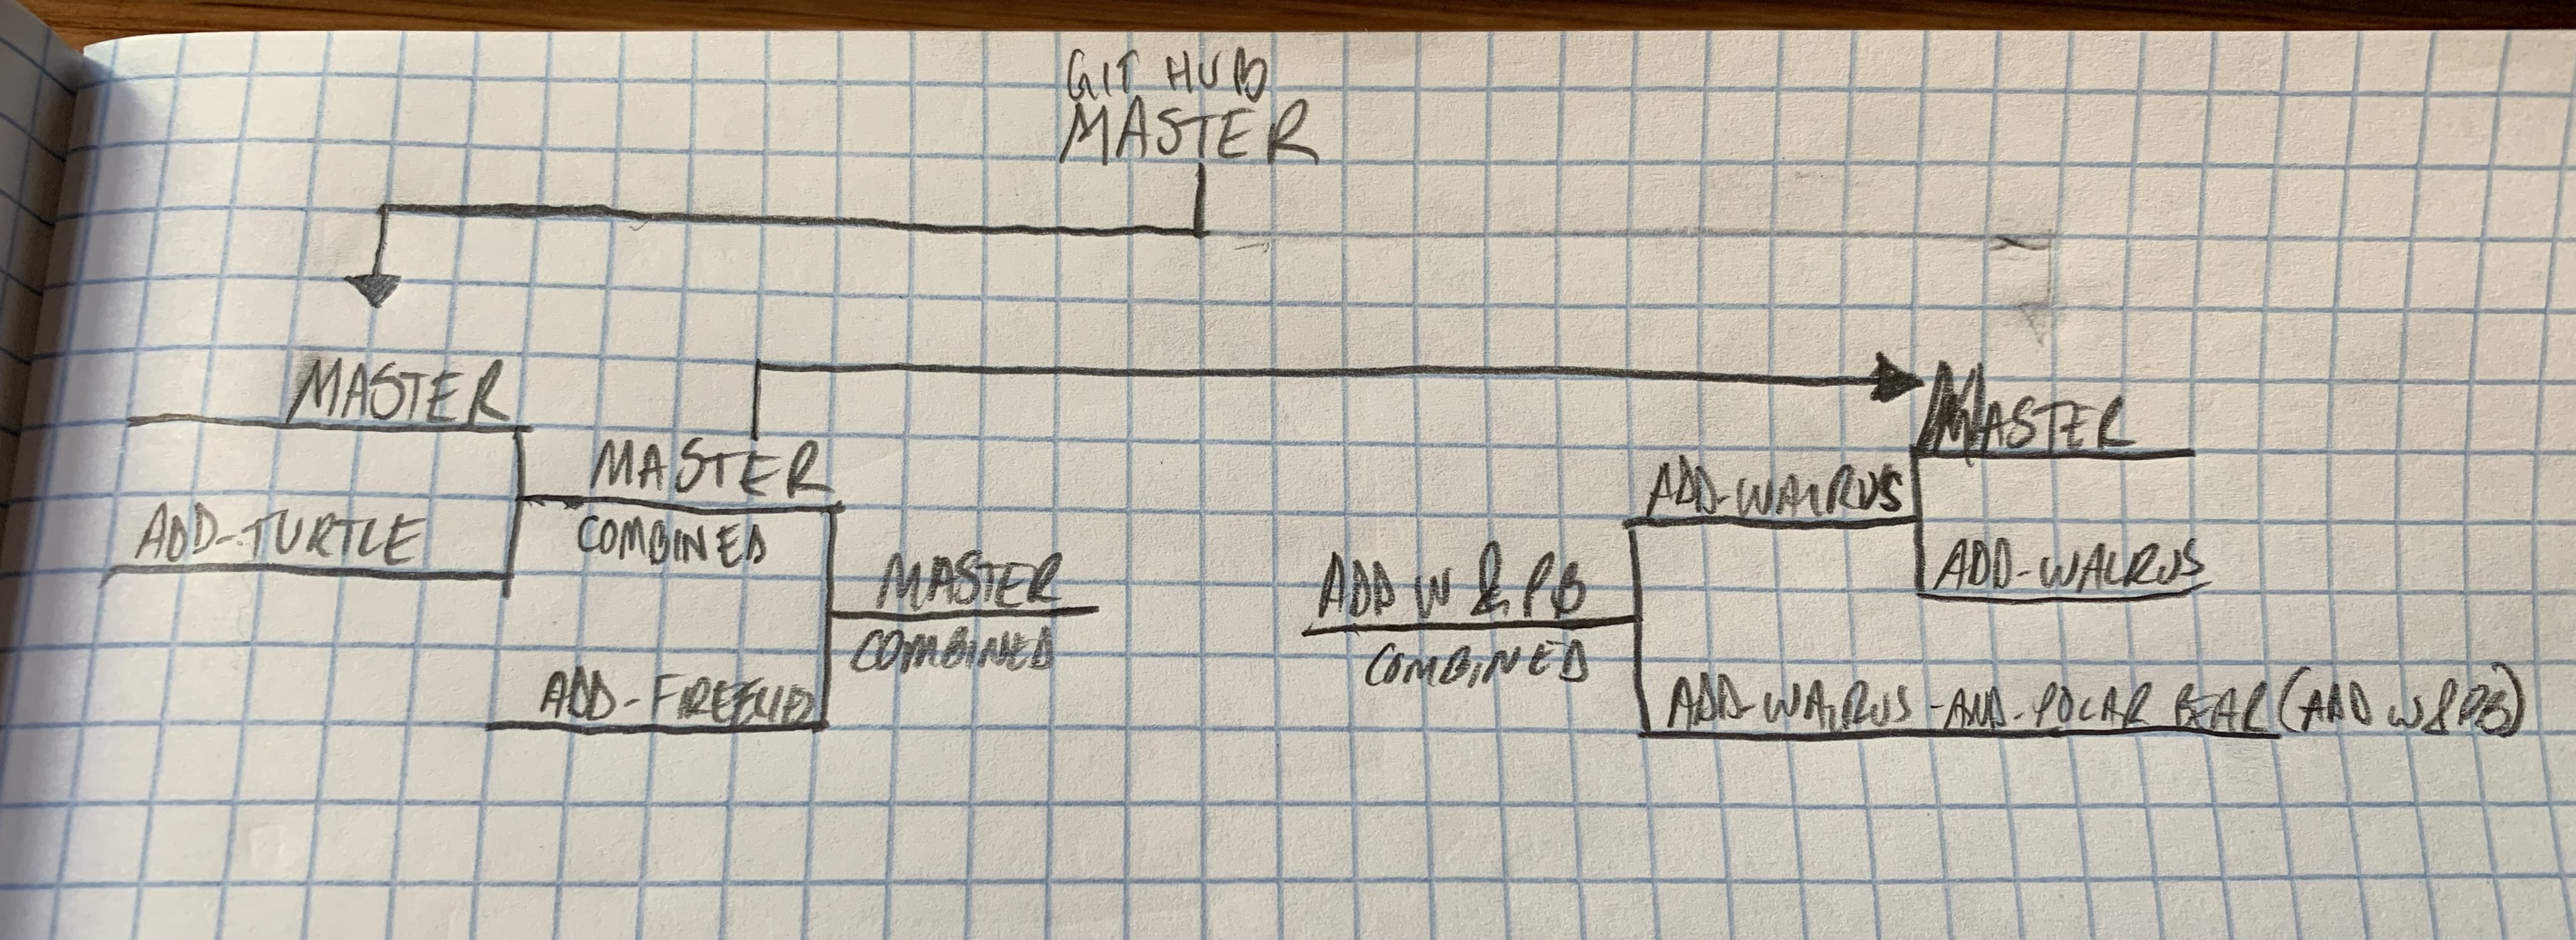 GIT HUB
MASTER
MASTER
ADD-TURTLE
MASTER
COMBINED
ADD-
MASTER
COMBINED
MASTER
ADD-WALRUS
ADD-WALRUS
ADD W & PB
COMBINED
ADD-WALRUS-AND-POLAR BEAR (ADD W & PB)